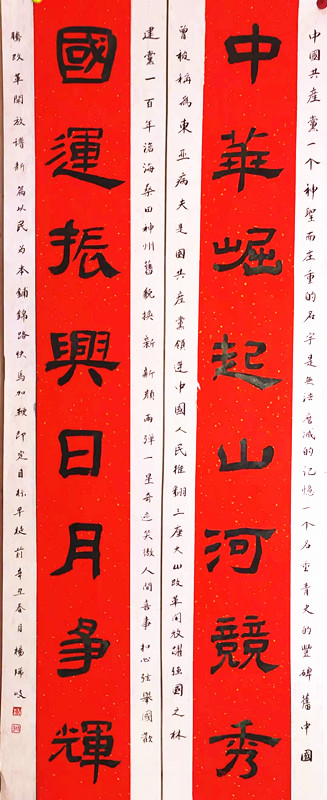 中國共産黨一个神聖而莊重的名字是無法磨滅的记憶一个名垂青史的豐碑舊中國
中華崛起山河競秀
曾被稱為東亚病夫是國共産黨領逆中國人民推翻三座大山改革開放躍強國之林
建黨一百年滄海桑田神州舊貌换新新顏两弹一星奇迹笑傲人間喜事扣心弦舉國歡
國運振興日月爭輝
騰改革開放譜新篇以民为本鋪錦路快馬加鞭即定目标早超前辛丑春月楊瑞岐